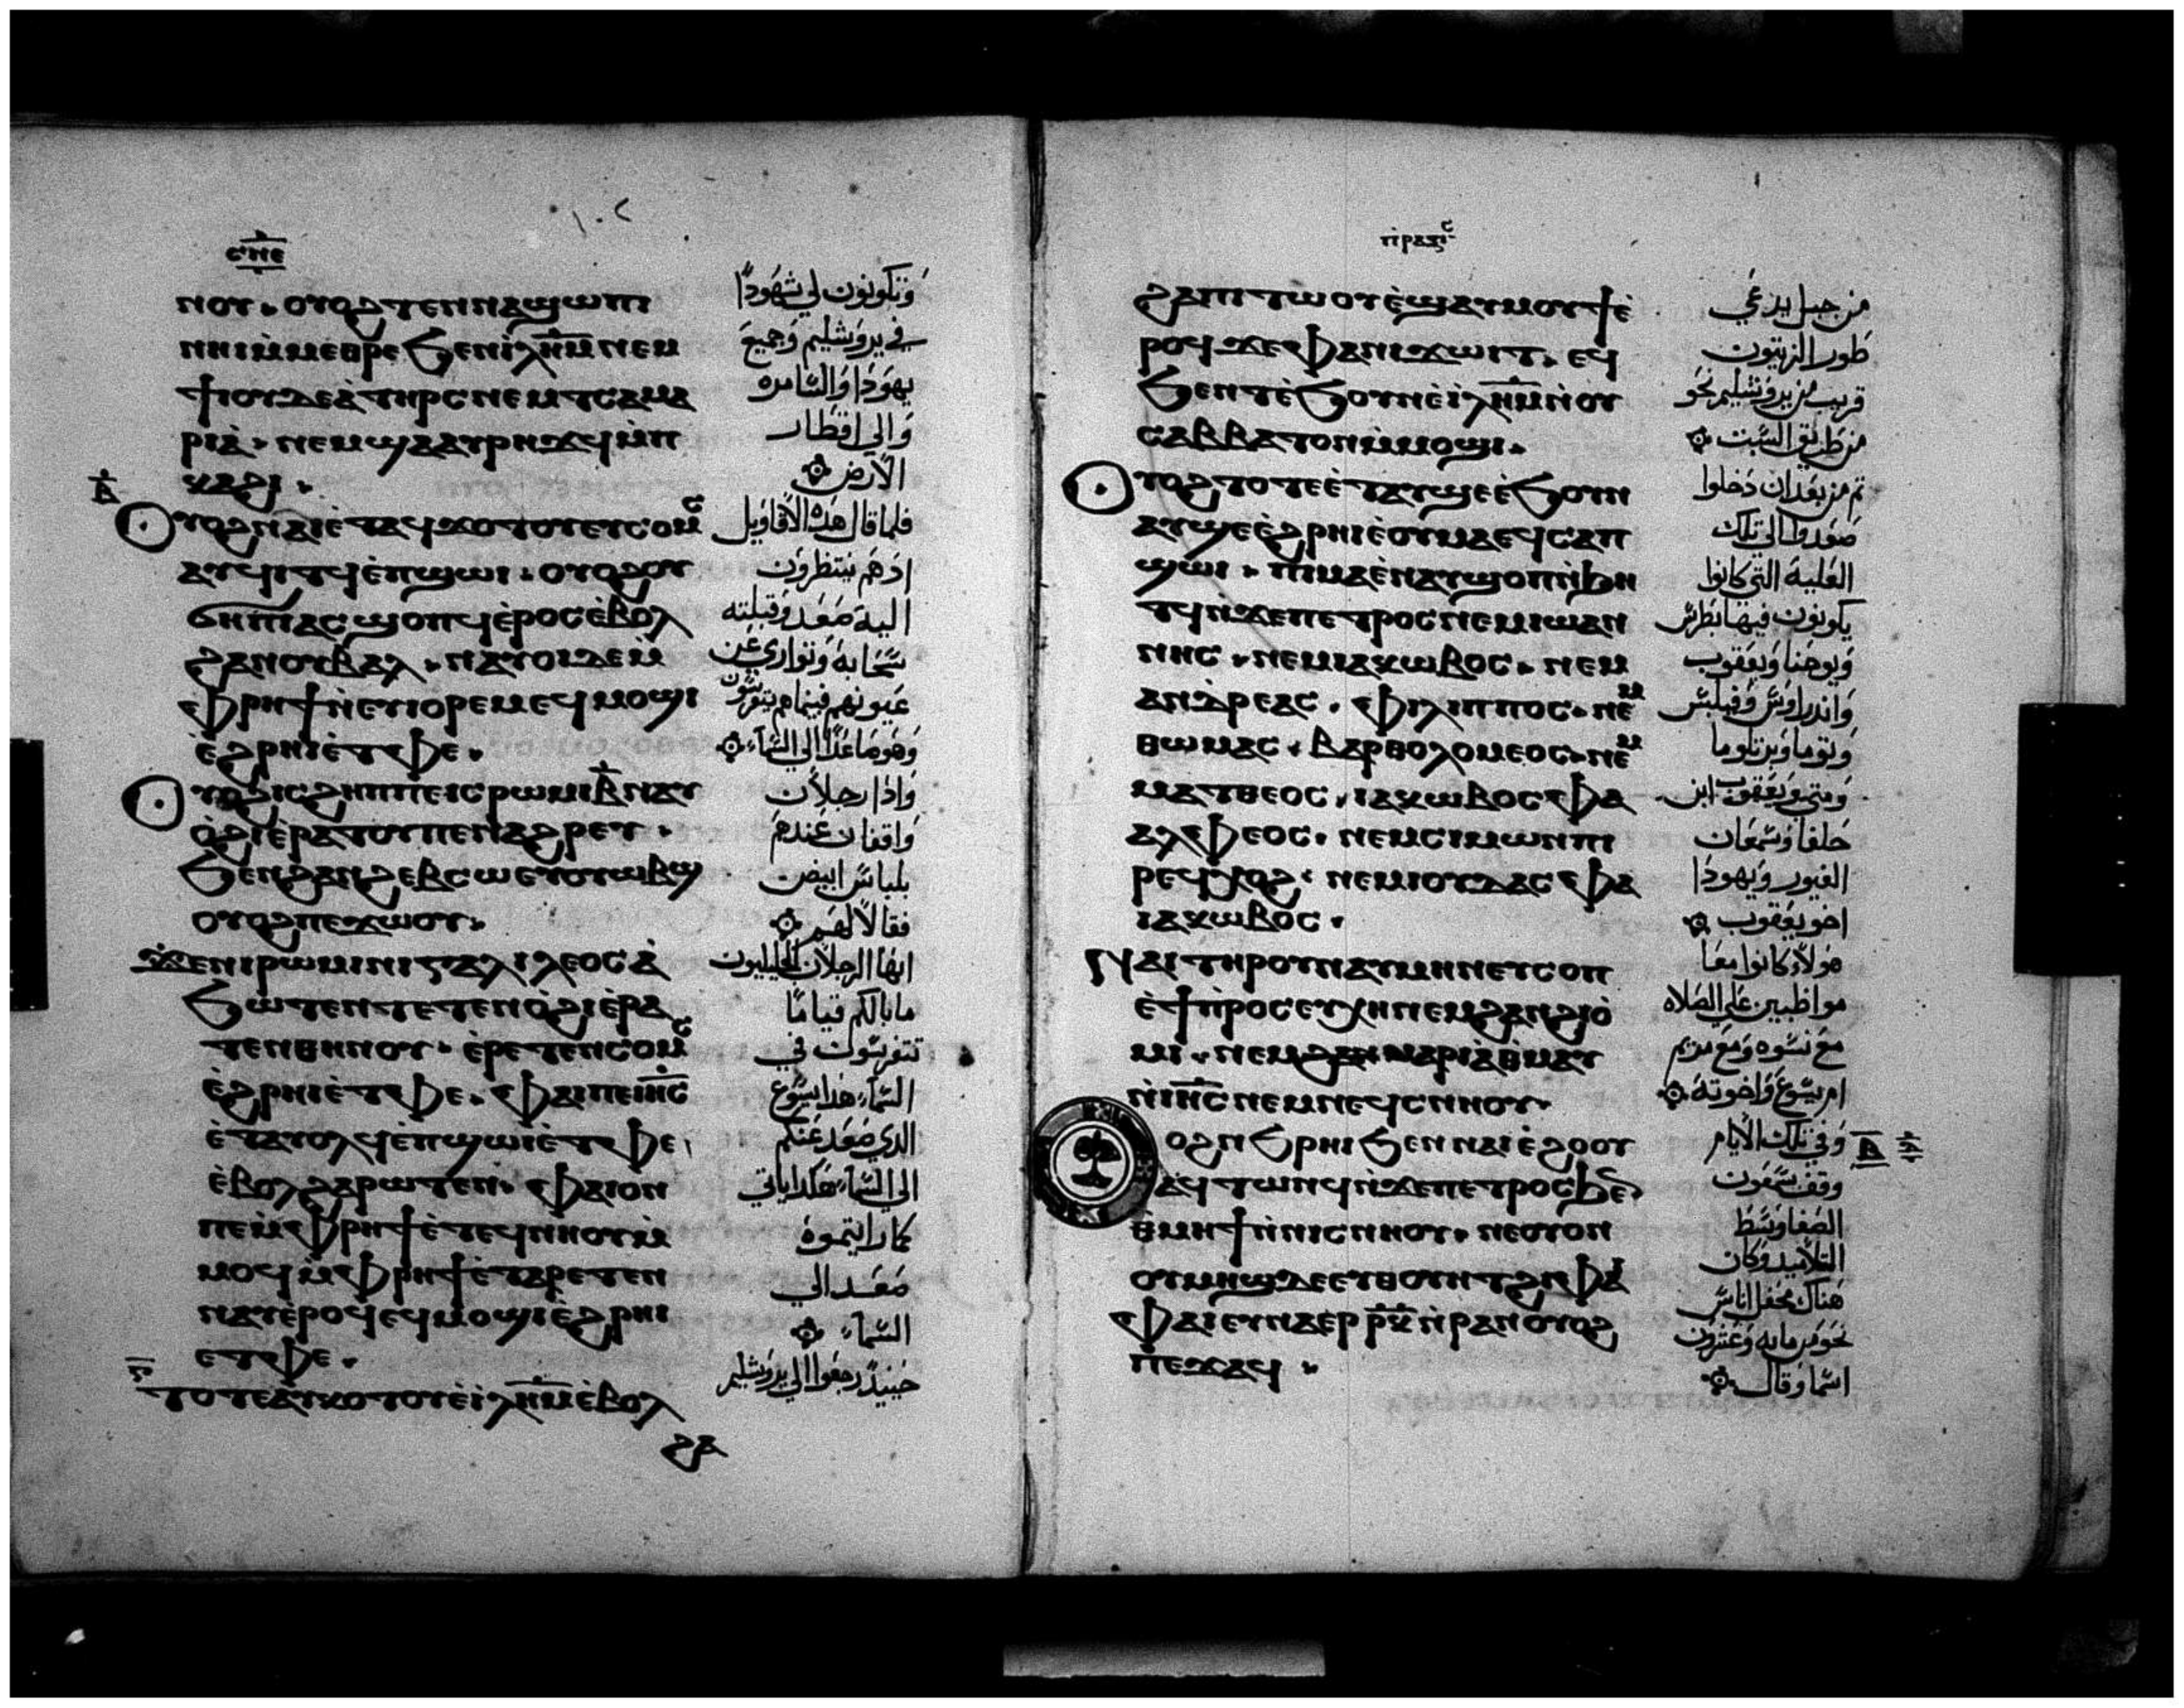 ⲥⲛⲉ
١٠٢
ⲛⲟⲩ. ⲟⲩⲟϩ ⲧⲉⲛⲛⲁϣⲱⲡⲓ
ⲛⲏⲓ ⲙ̀ⲙⲉⲑⲣⲉ ϧⲉⲛ ⲓ̀ⲗ̅ⲏ̅ⲙ̅ ⲛⲉⲙ
ϯⲓⲟⲩⲇⲉⲁ̀ ⲧⲏⲣⲥ ⲛⲉⲙ ⲧⲥⲁⲙⲁ
ⲣⲓⲁ̀. ⲛⲉⲙ ϣⲁ ⲁⲩⲣⲏϫϥ ⲙ̀ⲡ
ⲕⲁϩⲓ.
ⲃ̅
ⲟⲩⲟϩ ⲛⲁⲓ ⲉ̀ⲧⲁϥϫⲟⲧⲟⲩ ⲉⲩⲥⲟⲙⲥ
ⲁⲩϥⲓⲧϥ ⲉ̀ⲡϣⲱⲓ. ⲟⲩⲟϩ ⲟⲩ
ϭⲏⲡⲓ ⲁⲥϣⲟⲡϥ ⲉ̀ⲣⲟⲥ ⲉ̀ⲃⲟⲗ
ϩⲁ ⲛⲟⲩⲃⲁⲗ. ⲛⲁⲩⲟⲓ ⲇⲉ ⲙ̀
ⲫⲣⲏϯ ⲛ̀ⲉⲩⲓⲟⲣⲉⲙ ⲉϥⲙⲟϣⲓ
ⲉ̀ϩⲣⲏⲓ ⲉ̀ⲧⲫⲉ.
ⲟⲩⲟϩ ⲓⲥ ϩⲏⲡⲡⲉ ⲓⲥ ⲣⲱⲙⲓ ⲃ̅ ⲛⲁⲩ
ⲟ̀ϩⲓ ⲉ̀ⲣⲁⲧⲟⲩ ⲡⲉ ⲛⲁϩⲣⲉⲩ.
ϧⲉⲛ ϩⲁⲛϩⲉⲃⲥⲱ ⲉⲩⲟⲩⲱⲃϣ
ⲟⲩⲟϩ ⲡⲉϫⲱⲟⲩ.
ϫⲉ ⲛⲓⲣⲱⲙⲓ ⲛⲓⲅⲁⲗⲓⲗⲉⲟⲥ ⲁ̀
ϧⲱⲧⲉⲛ ⲧⲉⲧⲉⲛⲟ̀ϩⲓ ⲉ̀ⲣⲁ
ⲧⲉⲛⲑⲏⲛⲟⲩ. ⲉ̀ⲣⲉⲧⲉⲛⲥⲟⲙⲥ
ⲉ̀ϩⲣⲏⲓ ⲉ̀ⲧⲫⲉ. ⲫⲁⲓ ⲡⲉ ⲓ̅ⲏ̅ⲥ̅
ⲉ̀ⲧⲁⲩⲟⲗϥ ⲉ̀ⲡϣⲱⲓ ⲉ̀ⲧⲫⲉ
ⲉ̀ⲃⲟⲗ ϩⲁⲣⲱⲧⲉⲛ. ⲫⲁⲓ ⲟⲛ
ⲡⲉ ⲙ̀ⲫⲣⲏϯ ⲉ̀ⲧⲉϥⲛⲏⲟⲩ ⲙ̀
ⲙⲟϥ ⲙ̀ⲫⲣⲏϯ ⲉ̀ⲧⲁⲣⲉⲧⲉⲛ
ⲛⲁⲩ ⲉ̀ⲣⲟϥ ⲉϥⲙⲟϣⲓ ⲉ̀ϩⲣⲏⲓ
ⲉⲧⲫⲉ.
ⲅ̅
ⲧⲟⲧⲉ ⲁⲩⲕⲟⲧⲟⲩ ⲉ̀ⲓ̀ⲗ̅ⲏ̅ⲙ̅ ⲉ̀ⲃⲟⲗ
ϩⲁ
وَتكونون لي شهودًا
في يروشليم وَجميع
يهودا وَالسامره
وَالي اقطار
الارض
فلما قال هذه الاقاويل
اذ هم ينتظرون
اليه صَعَد وَقبلته
سَحابة وَتواري عن
عيونهم فبينما هم يتفرسون
وَهو صاعدًا الي السَّمآء
وَاذا رجلان
وَاقفان عندهم
بلباس ابيض
فقالا لهم
ايها الرجلان الجليليون
ما بالكم قيامًا
تتفرسون في
السَّمآء هذا يسوع
الذي صَعَد عنكم
الي السَّمآء هكذا ياتي
كما رايتموه
صَعَد الي
السَّمآء
حينيذ رجعوا الي يروشليم
ⲡⲣⲁⲝⲓⲥ
ϩⲁ ⲡⲓⲧⲱⲟⲩ ⲉ̀ϣⲁⲩⲙⲟⲩϯ ⲉ̀
ⲣⲟϥ ϫⲉ ⲫⲁ ⲛⲓϫⲱⲓⲧ. ⲉϥ
ϧⲉⲛⲧ ⲉ̀ϧⲟⲩⲛ ⲉ̀ⲓ̀ⲗ̅ⲏ̅ⲙ̅ ⲛ̀ⲟⲩ
ⲥⲁⲃⲃⲁⲧⲟⲛ ⲙ̀ⲙⲟϣⲓ.
ⲟⲩⲟϩ ⲧⲟⲧⲉ ⲉ̀ⲧⲁⲩϣⲉ ⲉ̀ϧⲟⲩⲛ
ⲁⲩϣⲉ ⲉ̀ϩⲣⲏⲓ ⲉ̀ⲟⲩⲙⲁ ⲉϥⲥⲁⲡ
ϣⲱⲓ. ⲡⲓⲙⲁ ⲉ̀ⲛⲁⲩϣⲟⲡ ⲛ̀ϧⲏ
ⲧϥ ⲛϫⲉ ⲡⲉⲧⲣⲟⲥ ⲛⲉⲙ ⲓⲱⲁⲛ
ⲛⲏⲥ. ⲛⲉⲙ ⲓⲁⲕⲱⲃⲟⲥ. ⲛⲉⲙ
ⲁⲛⲇⲣⲉⲁⲥ. ⲫⲓⲗⲓⲡⲡⲟⲥ. ⲛⲉⲙ
ⲑⲱⲙⲁⲥ. ⲃⲁⲣⲑⲟⲗⲟⲙⲉⲟⲥ. ⲛⲉⲙ
ⲙⲁⲧⲑⲉⲟⲥ. ⲓⲁⲕⲱⲃⲟⲥ ⲫⲁ
ⲁⲗⲫⲉⲟⲥ. ⲛⲉⲙ ⲥⲓⲙⲱⲛ ⲡⲓ
ⲣⲉϥⲭⲟϩ. ⲛⲉⲙ ⲓⲟⲩⲇⲁⲥ ⲫⲁ
ⲓⲁⲕⲱⲃⲟⲥ.
ⲛⲁⲓ ⲧⲏⲣⲟⲩ ⲛⲁⲩⲙⲏⲛ ⲉⲩⲥⲟⲡ
ⲉ̀ϯⲡⲣⲟⲥⲉⲩⲭⲏ ⲛⲉⲙ ϩⲁⲛϩⲓⲟ̀
ⲙⲓ. ⲛⲉⲙ ⲙⲁⲣⲓⲁ̀ ⲑ̀ⲙⲁⲩ
ⲛ̀ⲓ̅ⲏ̅ⲥ̅ ⲛⲉⲙ ⲛⲉϥⲥⲛⲏⲟⲩ.
ⲟϩ ⲛ̀ϧⲣⲏⲓ ϧⲉⲛ ⲛⲁⲓ ⲉ̀ϩⲟⲟⲩ
ⲁϥⲧⲱⲛϥ ⲛ̀ϫⲉ ⲡⲉⲧⲣⲟⲥ ϧⲉⲛ
ⲑⲙⲏϯ ⲛ̀ⲛⲓⲥⲛⲏⲟⲩ. ⲛⲉ ⲟⲩⲟⲛ
ⲟⲩⲙⲏϣ ⲇⲉ ⲉⲩⲑⲟⲩⲏⲧ ϩⲓ ⲫⲁ
ⲫⲁⲓ ⲉⲩⲛⲁⲉⲣ ⲣ̅ⲕ̅ ⲛ̀ⲣⲁⲛ ⲟⲩⲟϩ
ⲡⲉϫⲁϥ.
من جبل يدعي
طور الزيتون
قريب من يروشليم نحو
من طريق السَّبت
ثم من بعد ان دخلوا
صَعَدوا الي تلك
العلية التي كانوا
يكونون فيها بطرس
وَيوحنا وَيعقوب
وَاندراوس وَفيلبس
وَتوما وَبرتلوما
وَمتي وَيعقوب ابن
حلفا وَسمعان
الغيور وَيهودا
اخو يعقوب
هولاء كانوا معًا
مواظبين علي الصلاه
مع نسوه وَمع مريم
ام يسوع وَاخوته
وَفي تلك الايام
ⲃ̅
وقف سَمعون
الصفا وَسَط
التلاميذ وَكان
هناك محفل اناس
نحو من مايه وَعشرون
اسمًا وَقال